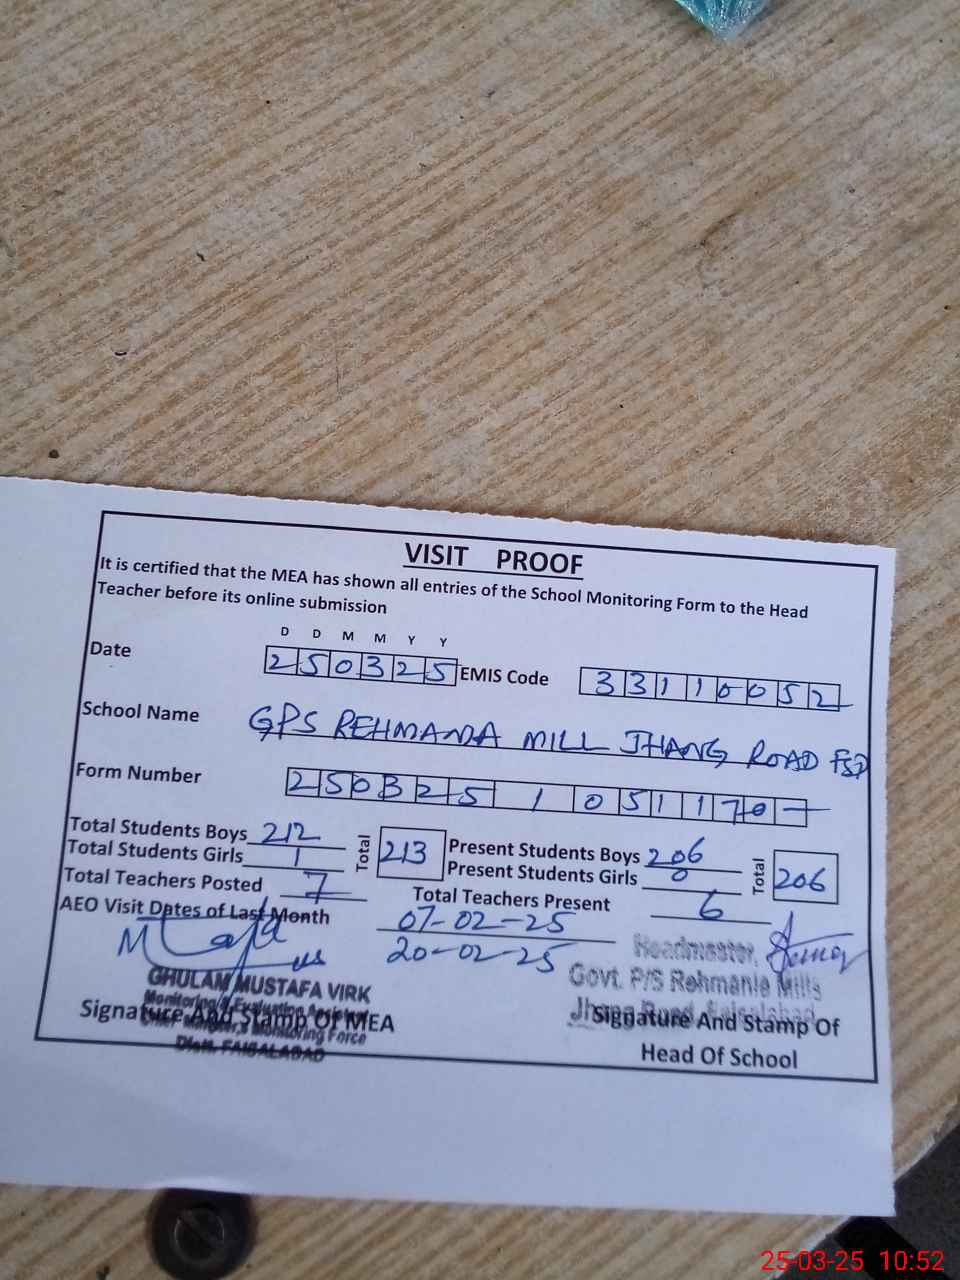 VISIT PROOF
It is certified that the MEA has shown all entries of the School Monitoring Form to the Head
Teacher before its online submission
D D M M Y Y
Date 250325 EMIS Code 33110052
School Name GPS REHMANIA MILL JHANG ROAD FSD
Form Number 250325 1 0511170-
Total Students Boys 212 Total 213 Present Students Boys 206 Total 206
Total Students Girls 1 Present Students Girls 0
Total Teachers Posted 7 Total Teachers Present 6
AEO Visit Dates of Last Month 07-02-25
20-02-25
GHULAM MUSTAFA VIRK
Monitoring & Evaluation Assistant
Monitoring Force
Distt. FAISALABAD
Signature And Stamp Of MEA
Headmaster,
Govt. P/S Rehmania Mills
Jhang Road, Faisalabad
Signature And Stamp Of
Head Of School
25-03-25 10:52